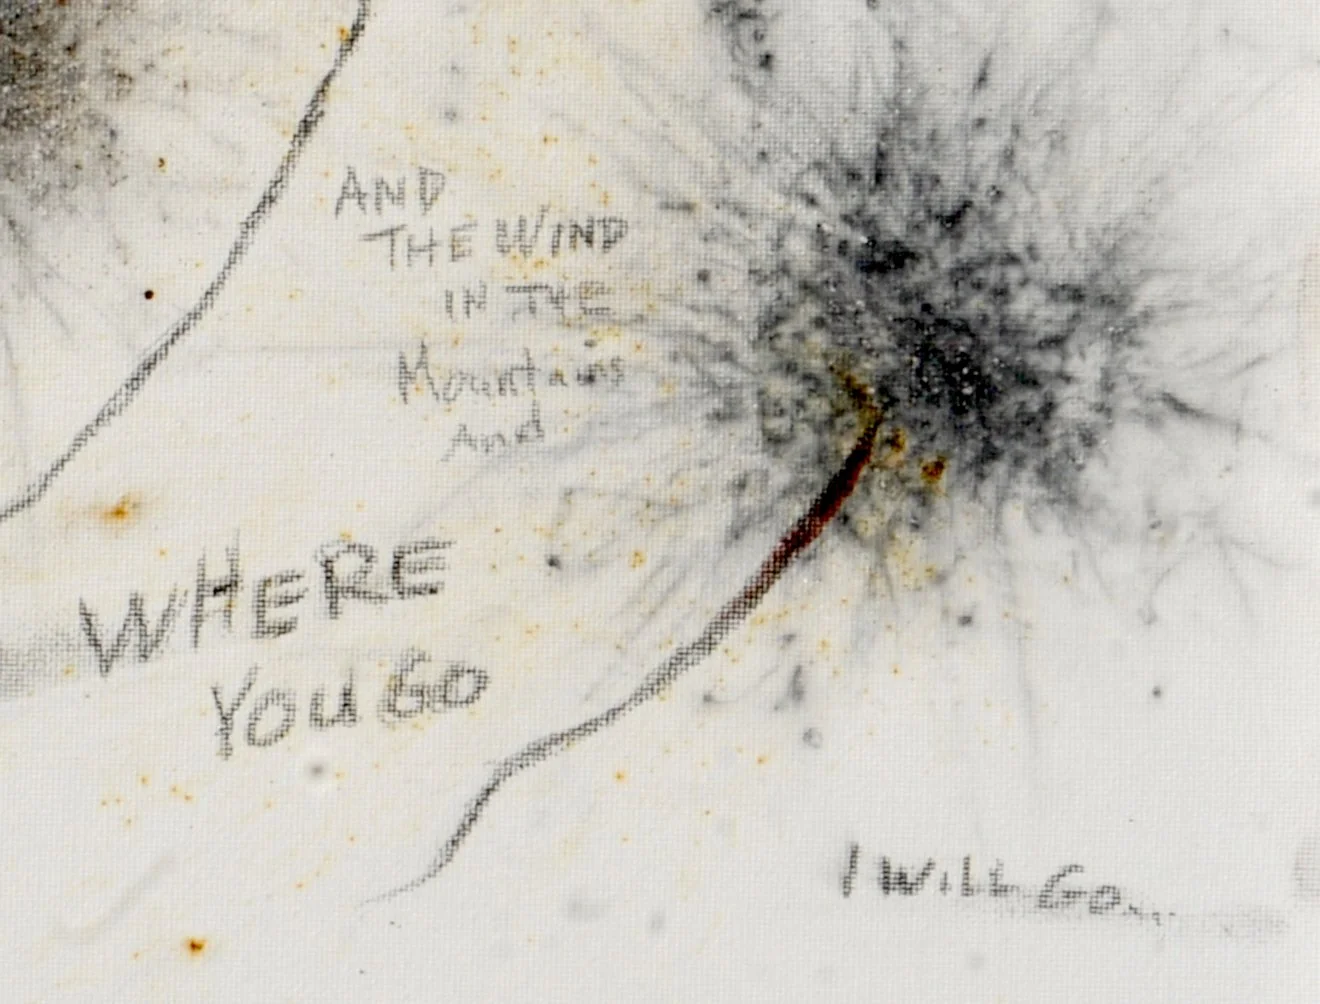 AND
THE WIND
IN THE
Mountains
And
WHERE
YOU GO
I WILL GO...